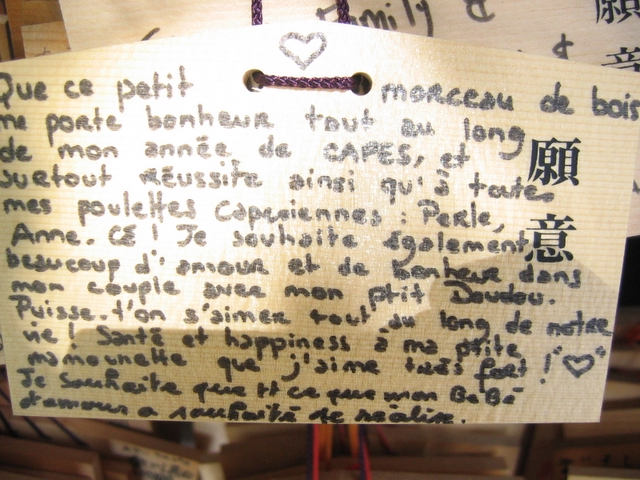 Family &
願
意
&
♡
Que ce petit morceau de bois
me porte bonheur tout au long
de mon année de CAPES, et
surtout réussite ainsi qu'à toutes
mes poulettes capesiennes : Perle,
Anne. Cé ! Je souhaite également
beaucoup d'amour et de bonheur dans
mon couple avec mon ptit Doudou.
Puisse-t'on s'aimer tout au long de notre
vie ! Santé et happiness à ma ptite
mamounette que j'aime très fort ! "♡"
Je souhaite que tt ce que mon BeBé
d'amour a souhaité se réalise.
願
意